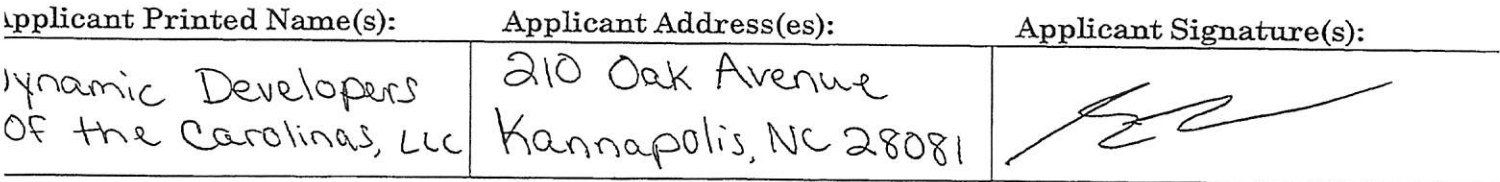 Applicant Printed Name(s): Applicant Address(es): Applicant Signature(s):
Dynamic Developers
Of the Carolinas, LLC
210 Oak Avenue
Kannapolis, NC 28081